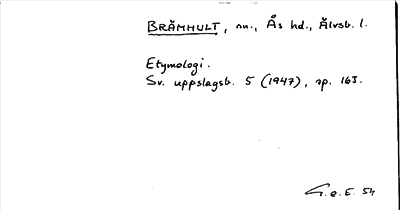 BRÄMHULT, sn., Ås hd., Älvsb. l.
Etymologi.
Sv. uppslagsb. 5 (1947), sp. 163.
G.e.E. 54